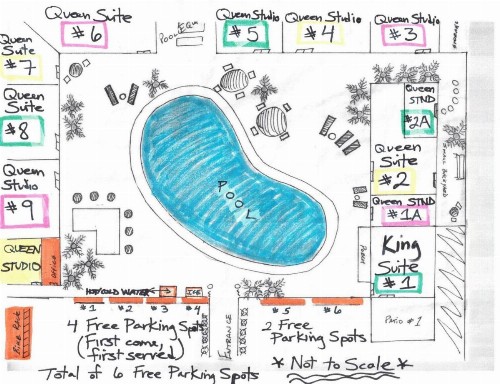 Queen Suite
#6
Queen Studio
#5
Queen Studio
#4
Queen Studio
#3
Queen
Suite
#7
Queen
Suite
#8
Queen
Studio
#9
QUEEN
STUDIO
OFFICE
POOL
Queen
STND
#2A
Queen
Suite
#2
Queen STND
#1A
SMALL BACKYARD
King
Suite
#1
PATIO #1
HOT/COLD WATER
ICE
#1 #2 #3 #4
#5 #6
ENTRANCE
4 Free Parking Spots
(First come,
first served)
2 Free
Parking Spots
Total of 6 Free Parking Spots
*Not to Scale*